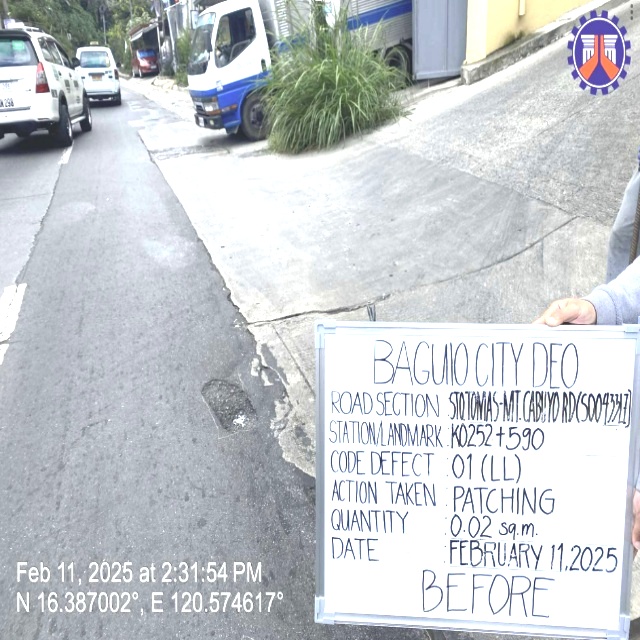 BAGUIO CITY DEO
ROAD SECTION STO.TOMAS-MT.CABUYO RD(S00433LZ)
STATION/LANDMARK : K0252+590
CODE DEFECT : 01 (LL)
ACTION TAKEN : PATCHING
QUANTITY : 0.02 sq.m.
DATE : FEBRUARY 11, 2025
BEFORE
Feb 11, 2025 at 2:31:54 PM
N 16.387002°, E 120.574617°